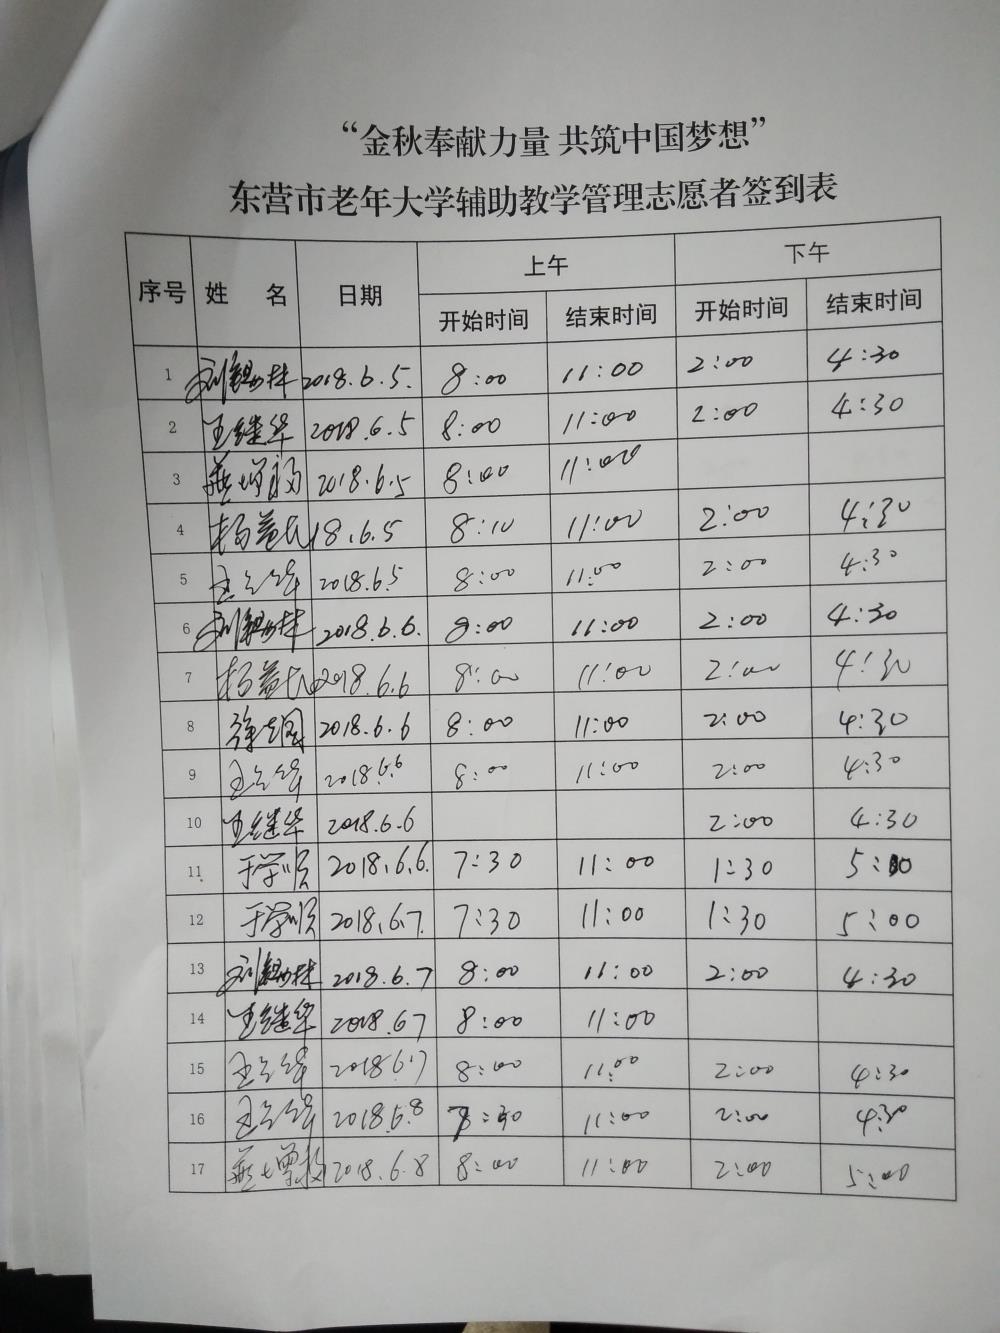 “金秋奉献力量 共筑中国梦想”
东营市老年大学辅助教学管理志愿者签到表
序号 姓 名 日期 上午 下午
开始时间 结束时间 开始时间 结束时间
1 2018.6.5. 8:00 11:00 2:00 4:30
2 王继华 2018.6.5 8:00 11:00 2:00 4:30
3 2018.6.5 8:00 11:00
4 杨益民 18.6.5 8:10 11:00 2:00 4:30
5 2018.6.5 8:00 11:00 2:00 4:30
6 2018.6.6. 8:00 11:00 2:00 4:30
7 杨益民 2018.6.6 8:00 11:00 2:00 4:30
8 2018.6.6 8:00 11:00 2:00 4:30
9 2018.6.6 8:00 11:00 2:00 4:30
10 王继华 2018.6.6 2:00 4:30
11 于学顺 2018.6.6. 7:30 11:00 1:30 5:00
12 于学顺 2018.6.7. 7:30 11:00 1:30 5:00
13 2018.6.7 8:00 11:00 2:00 4:30
14 王继华 2018.67 8:00 11:00
15 20186.7 8:00 11:00 2:00 4:30
16 2018.6.8 11:00 2:00 4:30
17 2018.6.8 8:00 11:00 2:00 5:00